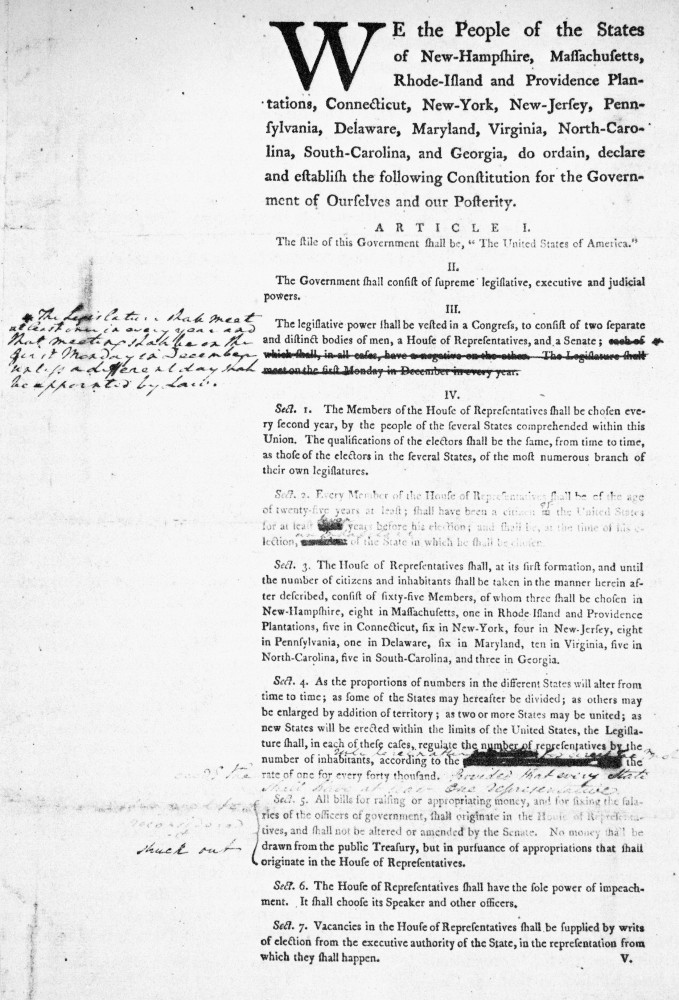 WE the People of the States
of New-Hampſhire, Maſſachuſetts,
Rhode-Iſland and Providence Plan-
tations, Connecticut, New-York, New-Jerſey, Penn-
ſylvania, Delaware, Maryland, Virginia, North-Caro-
lina, South-Carolina, and Georgia, do ordain, declare
and eſtabliſh the following Conſtitution for the Govern-
ment of Ourſelves and our Poſterity.
ARTICLE I.
The ſtile of this Government ſhall be, “ The United States of America.”
II.
The Government ſhall conſiſt of ſupreme legiſlative, executive and judicial
powers.
III.
The legiſlative power ſhall be veſted in a Congreſs, to conſiſt of two ſeparate
and diſtinct bodies of men, a Houſe of Repreſentatives, and a Senate ; each of *
which ſhall, in all caſes, have a negative on the other. The Legiſlature ſhall
meet on the firſt Monday in December in every year.
* The Legislature shall meet
at least once in every year and
that meeting shall be on the
first Monday in December
unless a different day shall
be appointed by Law.
IV.
Sect. 1. The Members of the Houſe of Repreſentatives ſhall be choſen eve-
ry ſecond year, by the people of the ſeveral States comprehended within this
Union. The qualifications of the electors ſhall be the ſame, from time to time,
as thoſe of the electors in the ſeveral States, of the moſt numerous branch of
their own legiſlatures.
Sect. 2. Every Member of the Houſe of Repreſentatives ſhall be of the age
of twenty-five years at leaſt ; ſhall have been a citizen of the United States
for at leaſt years before his election ; and ſhall be, at the time of his e-
lection, of the State in which he ſhall be choſen.
Sect. 3. The Houſe of Repreſentatives ſhall, at its firſt formation, and until
the number of citizens and inhabitants ſhall be taken in the manner herein af-
ter deſcribed, conſiſt of ſixty-five Members, of whom three ſhall be choſen in
New-Hampſhire, eight in Maſſachuſetts, one in Rhode-Iſland and Providence
Plantations, five in Connecticut, ſix in New-York, four in New-Jerſey, eight
in Pennſylvania, one in Delaware, ſix in Maryland, ten in Virginia, five in
North-Carolina, five in South-Carolina, and three in Georgia.
Sect. 4. As the proportions of numbers in the different States will alter from
time to time ; as ſome of the States may hereafter be divided ; as others may
be enlarged by addition of territory ; as two or more States may be united ; as
new States will be erected within the limits of the United States, the Legiſla-
ture ſhall, in each of theſe caſes, regulate the number of repreſentatives by the
number of inhabitants, according to the the
rate of one for every forty thouſand. Provided that every State
shall have at least one representative
Sect. 5. All bills for raiſing or appropriating money, and for fixing the ſala-
ries of the officers of government, ſhall originate in the Houſe of Repreſenta-
tives, and ſhall not be altered or amended by the Senate. No money ſhall be
drawn from the public Treaſury, but in purſuance of appropriations that ſhall
originate in the Houſe of Repreſentatives.
struck out
Sect. 6. The Houſe of Repreſentatives ſhall have the ſole power of impeach-
ment. It ſhall chooſe its Speaker and other officers.
Sect. 7. Vacancies in the Houſe of Repreſentatives ſhall be ſupplied by writs
of election from the executive authority of the State, in the repreſentation from
which they ſhall happen. V.